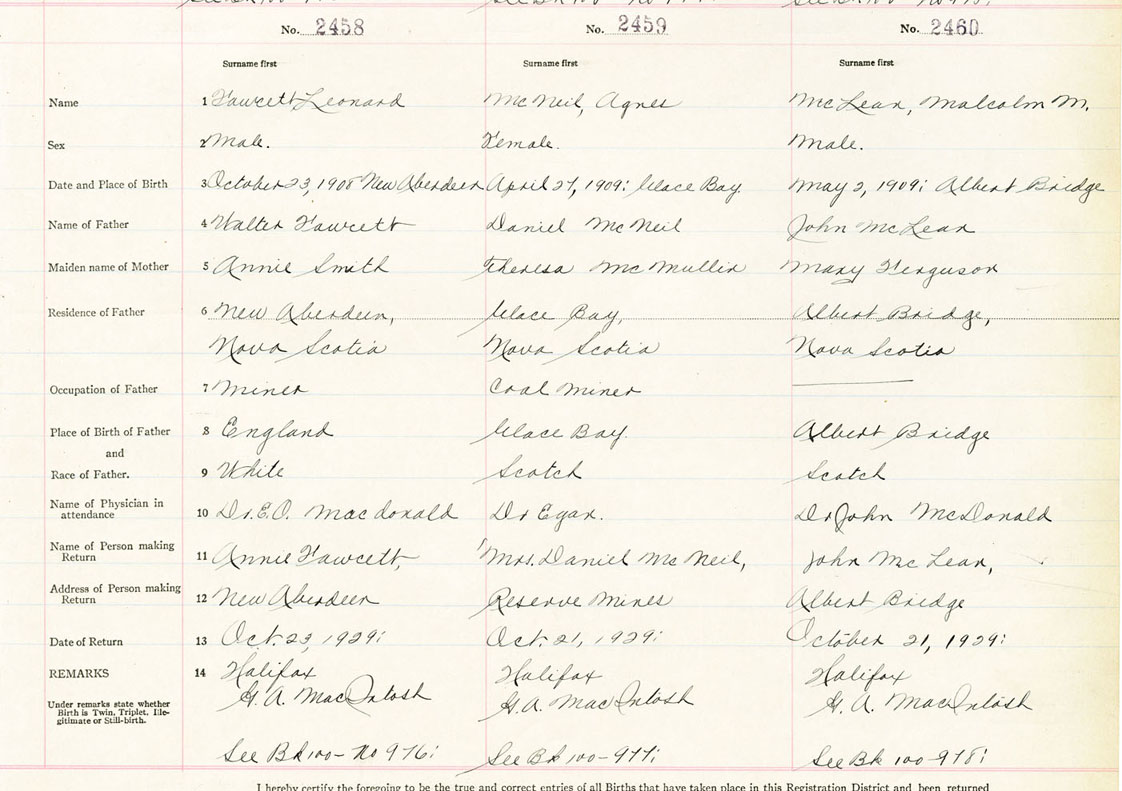 No. 2458 No. 2459 No. 2460
Surname first Surname first Surname first
Name 1 Fawcett Leonard McNeil, Agnes McLean, Malcolm M.
Sex 2 Male. Female. Male.
Date and Place of Birth 3 October 23, 1908 New Aberdeen April 27, 1909: Glace Bay. May 2, 1909: Albert Bridge
Name of Father 4 Walter Fawcett Daniel McNeil John McLean
Maiden name of Mother 5 Annie Smith Theresa McMullin Mary Ferguson
Residence of Father 6 New Aberdeen, Glace Bay, Albert Bridge,
Nova Scotia Nova Scotia Nova Scotia
Occupation of Father 7 Miner Coal Miner
Place of Birth of Father 8 England Glace Bay. Albert Bridge
and
Race of Father. 9 White Scotch Scotch
Name of Physician in attendance 10 Dr. E.O. Macdonald Dr Egan. Dr John McDonald
Name of Person making Return 11 Annie Fawcett, Mrs. Daniel McNeil, John McLean,
Address of Person making Return 12 New Aberdeen Reserve Mines Albert Bridge
Date of Return 13 Oct. 23, 1929: Oct. 21, 1929: October 21, 1929:
REMARKS 14 Halifax Halifax Halifax
G. A. MacIntosh G. A. MacIntosh G. A. MacIntosh
Under remarks state whether
Birth is Twin, Triplet, Ille-
gitimate or Still-birth.
See Bk 100 - No 976: See Bk 100 - 977: See Bk 100 - 978:
I hereby certify the foregoing to be the true and correct entries of all Births that have taken place in this Registration District and been returned